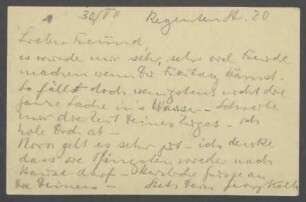 30/VII Regentenstr. 20
Lieber Freund,
es würde mir sehr, sehr viel Freude
machen wenn Du Freitag kämst.
So fällt doch wenigstens nicht die
ganze Sache ins Wasser – Schreibe
mir die Zeit Deines Zuges – ich
hole Dich ab –
Nora geht es sehr gut – ich denke
dass sie Pfingsten wieder nach
Hause darf – Herzliche Grüsse an
die Deinen – Stets Dein Georg Kolbe